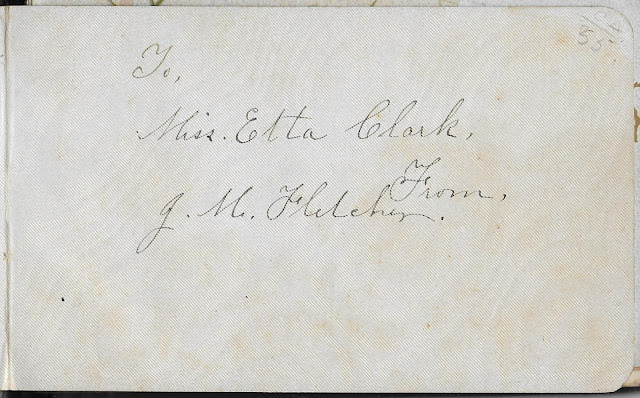 To,
Miss. Etta Clark,
From,
J. M. Fletcher.
55